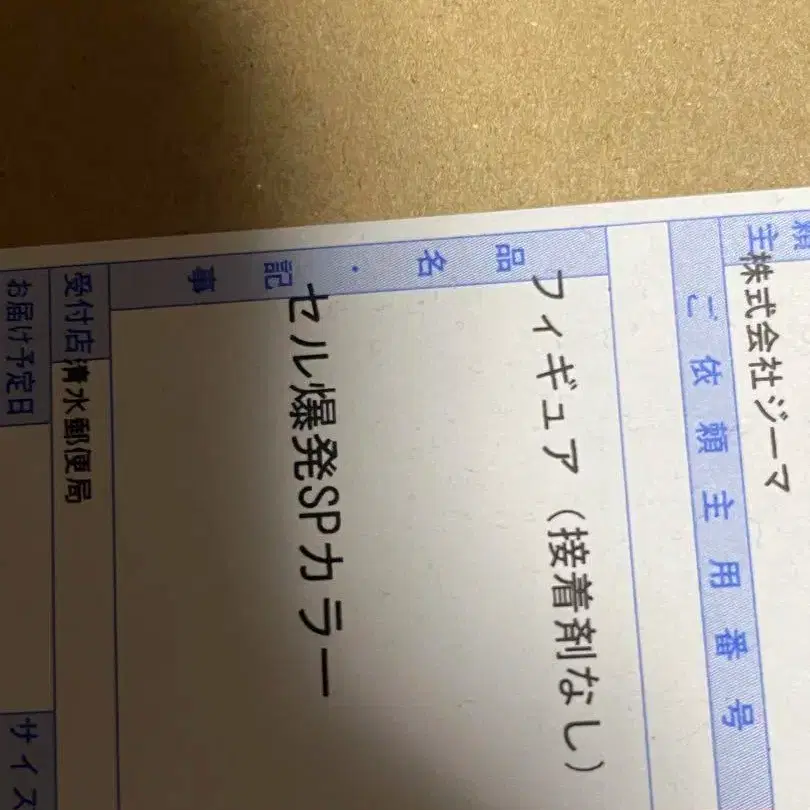 頼主
株式会社ジーマ
ご依頼主用番号
品名・記事
フィギュア（接着剤なし）
セル爆発SPカラー
受付店
清水郵便局
お届け予定日
サイズ